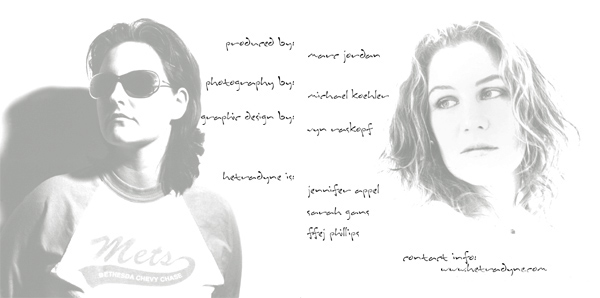 produced by:
marc jordan
photography by:
michael koehler
graphic design by:
vyn raskopf
hetradyne is:
jennifer appel
sarah gans
ffej phillips
Mets
BETHESDA CHEVY CHASE
contact info:
www.hetradyne.com